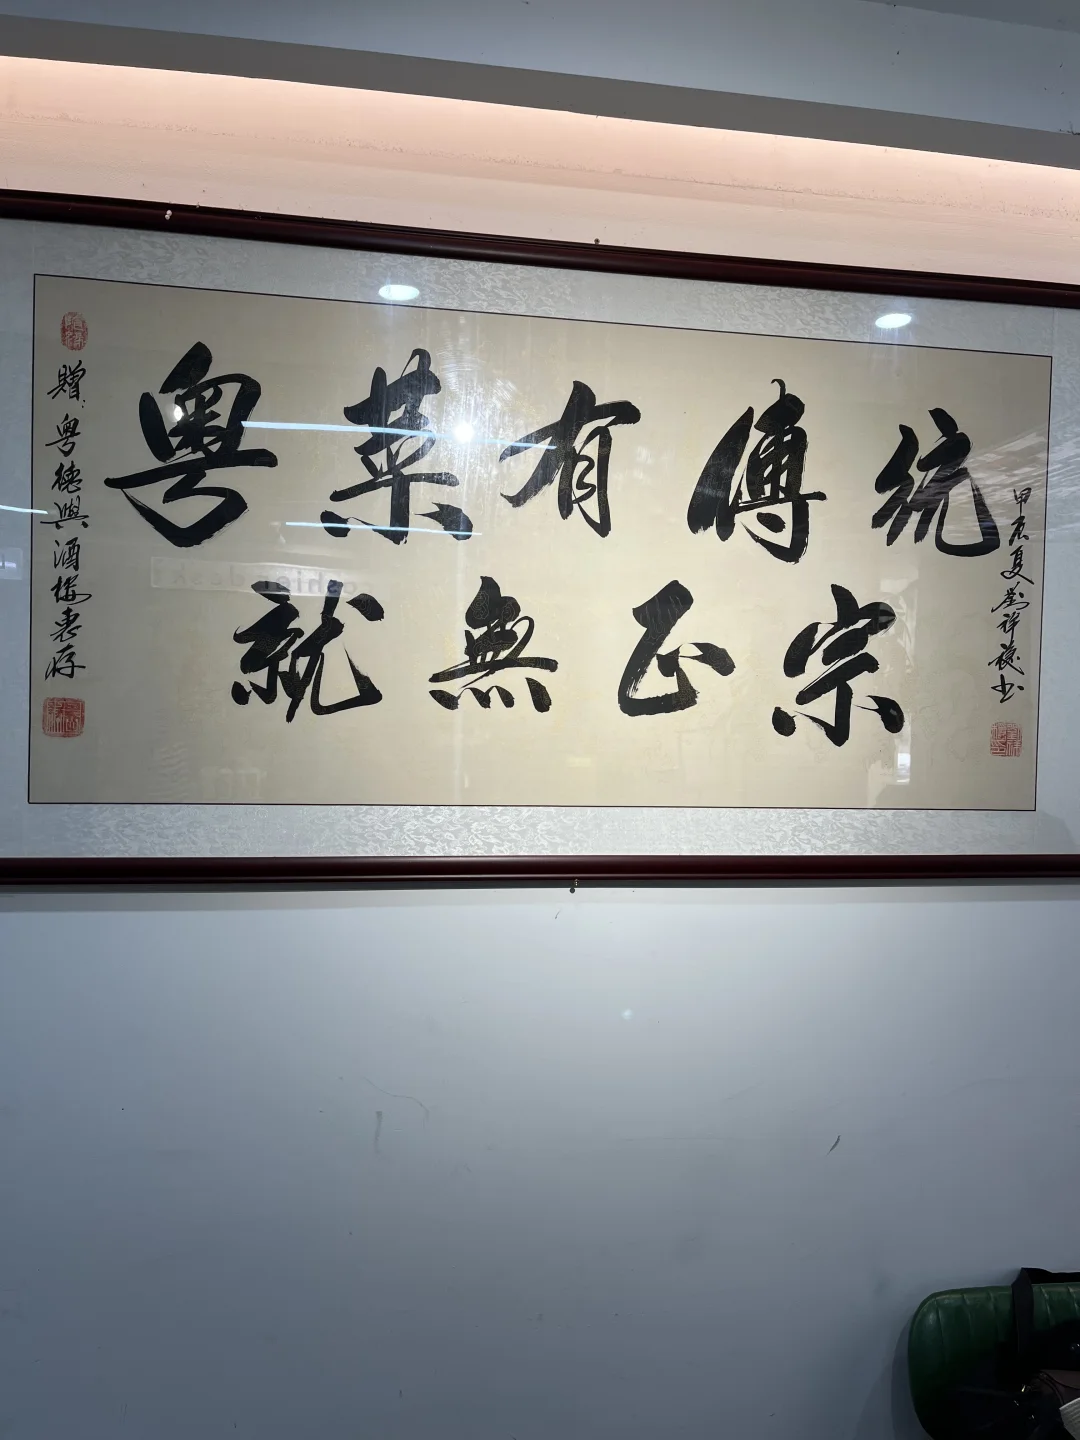 粤菜有傳統
就無正宗
贈:粤德興酒樓惠存
甲辰夏